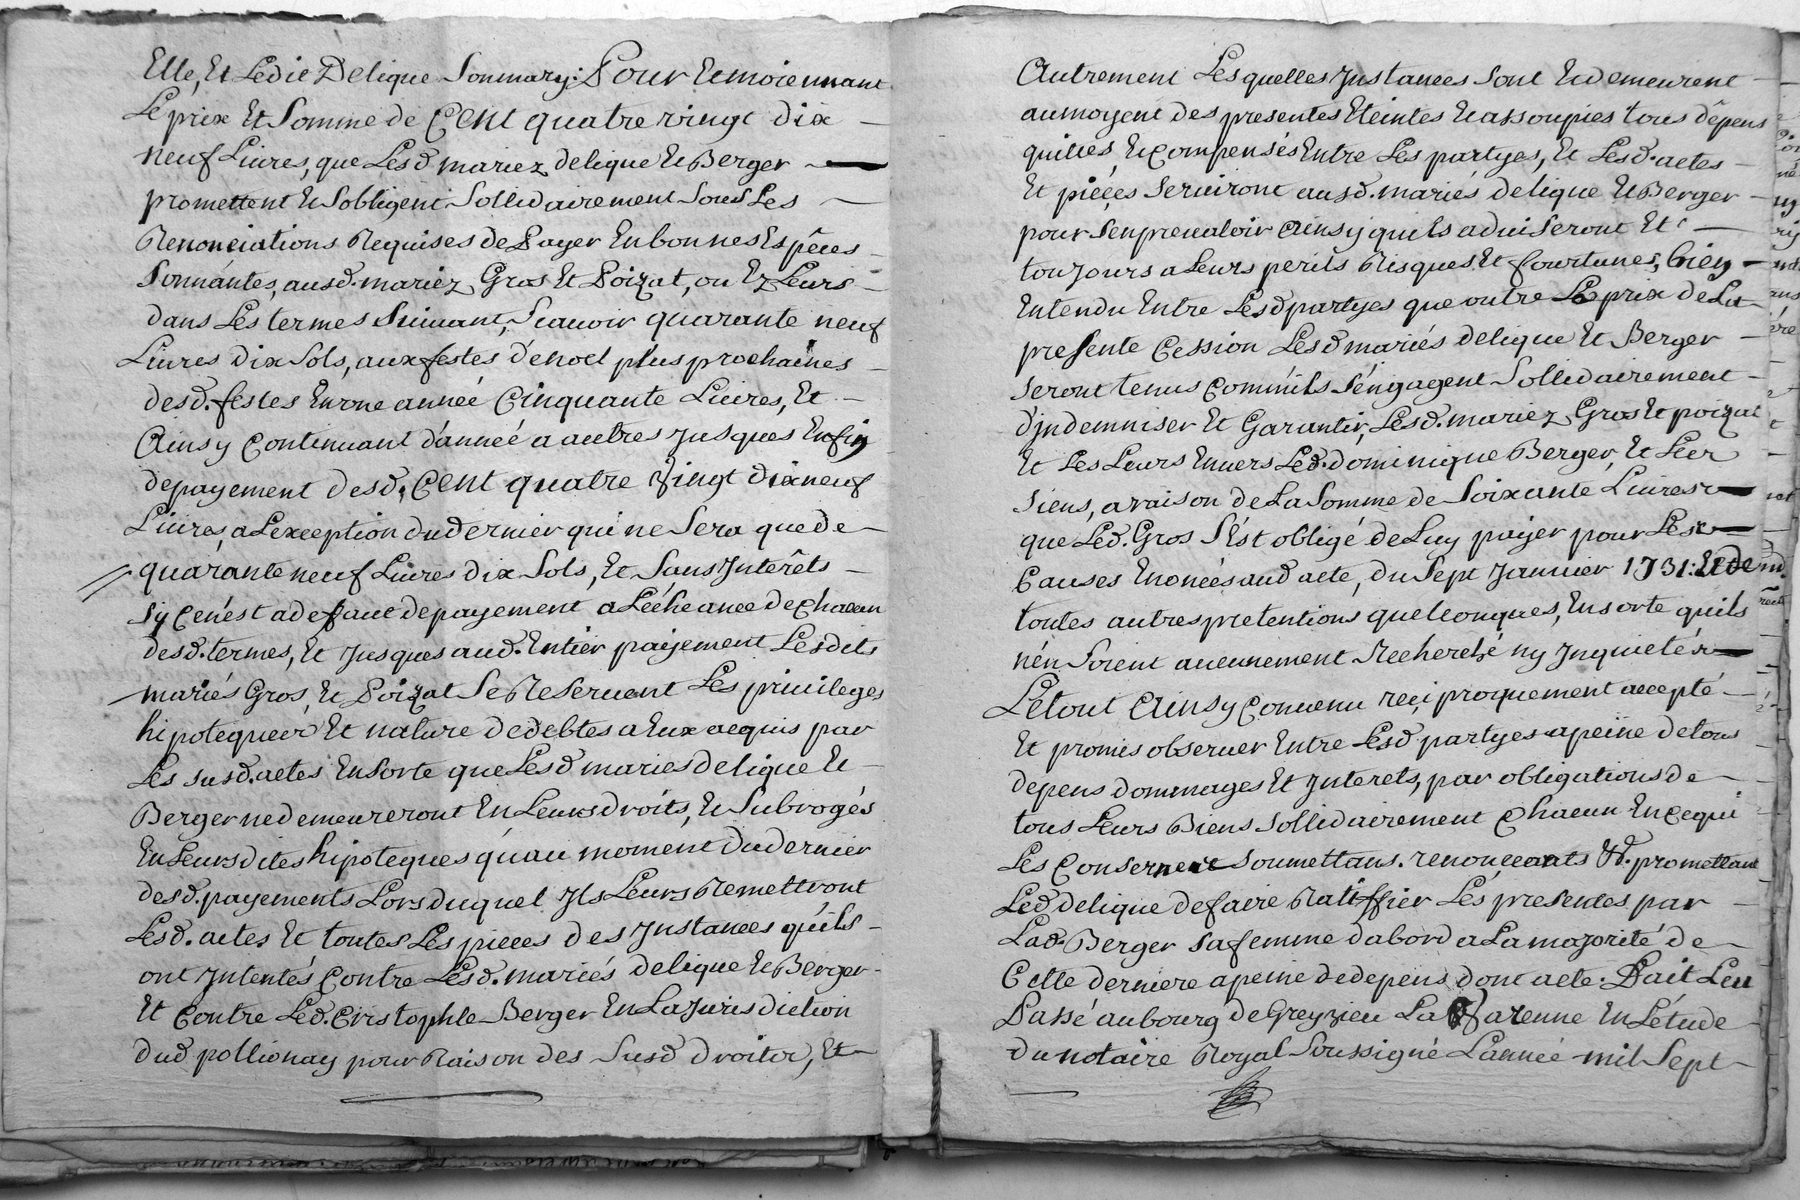 Elle, Et Ledit Delique Sommary: Pour Et moiennant
Le prix Et Somme de Cent quatre vingt dix
neuf Livres, que Lesd mariez delique Et Berger
promettent Et Sobligent Sollidairement Sous Les
Renonciations Requises de Payer En bonnes Espêces
Sonnántes, ausd. mariéz Gros Et Poizat, ou Ez Leurs
dans Les termes Suivant, Scavoir quarante neuf
Livres dix Sols, aux festes de noel plus prochaines
desd. festes En une année Cinquante Livres, Et
Ainsy Continuant d'année a autres Jusques Enfin
depayement desd. Cent quatre Vingt dix neuf
Livres, a Lexception du dernier qui ne Sera que de
quarante neuf Livres dix Sols, Et Sans Interêts
Sy Ce n'est a deffaut de payement a Léchéance de Chacun
desd. termes, Et Jusques aud. Entier paÿement Lesdits
mariés Gros, Et Poizat Se Reservent Les privileges
hipotequer Et nature de debtes a Eux acquis par
Les susd. actes En Sorte que Lesd mariés delique Et
Berger ne demeureront En Leurs droits, Et Subrogés
En Leurs dites hipoteques qu'au moment du dernier
desd. payements Lors duquel Ils Leurs Remettront
Lesd. actes Et toutes Les pieces des Instances qu'ils
ont Intentés Contre Lesd. mariés delique Et Berger
Et Contre Led. Cristophle Berger En La Jurisdiction
dud pollionay pour Raison des Susd droits, Et
Autrement Lesquelles Instances Sont Et demeurent
au moyent des presentes Eteintes Et assoupies tous dêpens
quittés Et Compensés Entre Les partyes, Et Lesd. actes
Et pièces Serviront ausd. mariés delique Et Berger
pour S'en prevaloir Ainsy quils adviseront Et
toujours a Leurs perils Risques Et fourtunes, bien
Entendu Entre Lesd partyes que outre Le prix de La
presente Cession Lesd mariés delique Et Berger
seront tenus Comm'ils S'engagent Sollidairement
d'Indemniser Et Garantir, Lesd. mariez Gros Et poizat
Et Les Leurs Envers Led. dominique Berger, Et Les
Siens, a raison de La Somme de Soixante Livres
que Led. Gros S'est obligé de Luy payer pour Les
Causes Enoncées aud acte, du Sept Janvier 1731: Et de
toutes autres pretentions quelconques, En sorte quils
n'en Soient aucunement Recherché ny Inquietés
Le tout Ainsy Convenu reciproquement accepté
Et promis observer Entre Lesd partyes a peine de tous
depens dommages Et Interets, par obligations de
tous Leurs Biens Sollidairement Chacun En Ce qui
Les Conserne Soumettans. renonceants &d. promettant
Led delique de faire Ratiffier Les presentes par
Lad. Berger Sa femme d'abord a La majorité de
Cette derniere a peine de depens dont acte. Fait Leu
Passé au bourg de Greyzieu La Varenne En L'étude
du notaire Royal Soussigné L'année mil Sept